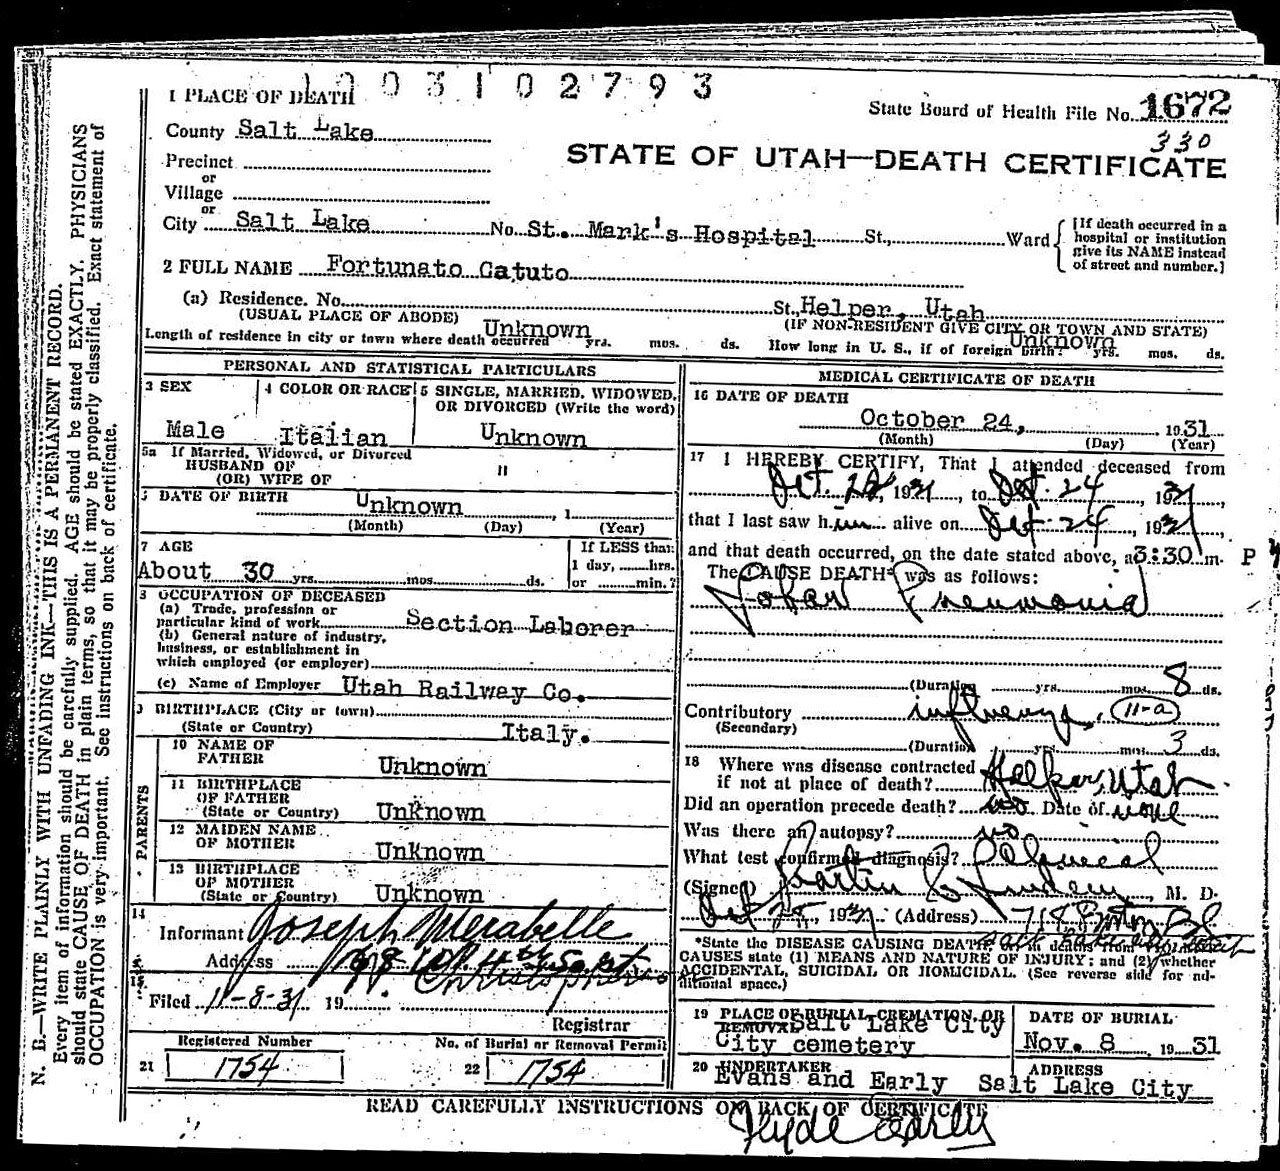 1 0 0 3 1 0 2 7 9 3
1 PLACE OF DEATH
State Board of Health File No. 1672
330
County Salt Lake
STATE OF UTAH—DEATH CERTIFICATE
Precinct
or
Village
or
City Salt Lake No. St. Mark's Hospital St., Ward
[If death occurred in a hospital or institution give its NAME instead of street and number.]
2 FULL NAME Fortunato Catuto
(a) Residence. No. St. Helper, Utah
(USUAL PLACE OF ABODE) (IF NON-RESIDENT GIVE CITY OR TOWN AND STATE)
Length of residence in city or town where death occurred Unknown yrs. mos. ds. How long in U. S., if of foreign birth? Unknown yrs. mos. ds.
PERSONAL AND STATISTICAL PARTICULARS
3 SEX
Male
4 COLOR OR RACE
Italian
5 SINGLE, MARRIED, WIDOWED,
OR DIVORCED (Write the word)
Unknown
5a If Married, Widowed, or Divorced
HUSBAND OF
(OR) WIFE OF "
6 DATE OF BIRTH Unknown , 1
(Month) (Day) (Year)
7 AGE
About 30 yrs. mos. ds.
If LESS than
1 day, hrs.
or min.?
8 OCCUPATION OF DECEASED
(a) Trade, profession or
particular kind of work Section Laborer
(b) General nature of industry,
business, or establishment in
which employed (or employer)
(c) Name of Employer Utah Railway Co.
9 BIRTHPLACE (City or town)
(State or Country) Italy.
PARENTS
10 NAME OF
FATHER Unknown
11 BIRTHPLACE
OF FATHER
(State or Country) Unknown
12 MAIDEN NAME
OF MOTHER Unknown
13 BIRTHPLACE
OF MOTHER
(State or Country) Unknown
14
Informant Joseph Merabelle
Address
15
Filed 11-8-31 19
Registrar
Registered Number
21 1754
No. of Burial or Removal Permit
22 1754
MEDICAL CERTIFICATE OF DEATH
16 DATE OF DEATH
October 24, 1931
(Month) (Day) (Year)
17 I HEREBY CERTIFY, That I attended deceased from
Oct. , 1931, to Oct. 24, 1931,
that I last saw him alive on Oct. 24, 1931,
and that death occurred, on the date stated above, at 3:30 m. P
The CAUSE DEATH* was as follows:
Lobar Pneumonia
(Duration yrs. mos. 8 ds.
Contributory influenza, 11-a
(Secondary)
(Duration yrs. mos. 3 ds.
18 Where was disease contracted
if not at place of death? Helper, Utah
Did an operation precede death? no Date of none
Was there an autopsy? no
What test confirmed diagnosis?
(Signed) , M. D.
Oct , 1931 (Address) 718
*State the DISEASE CAUSING DEATH, or in deaths from VIOLENT
CAUSES state (1) MEANS AND NATURE OF INJURY: and (2) whether
ACCIDENTAL, SUICIDAL OR HOMICIDAL. (See reverse side for ad-
ditional space.)
19 PLACE OF BURIAL, CREMATION, OR
REMOVAL Salt Lake City
City cemetery
DATE OF BURIAL
Nov. 8 1931
20 UNDERTAKER
Evans and Early
ADDRESS
Salt Lake City
READ CAREFULLY INSTRUCTIONS ON BACK OF CERTIFICATE
Clyde Early
N. B.—WRITE PLAINLY WITH UNFADING INK—THIS IS A PERMANENT RECORD.
Every item of information should be carefully supplied. AGE should be stated EXACTLY. PHYSICIANS
should state CAUSE OF DEATH in plain terms, so that it may be properly classified. Exact statement of
OCCUPATION is very important. See instructions on back of certificate.